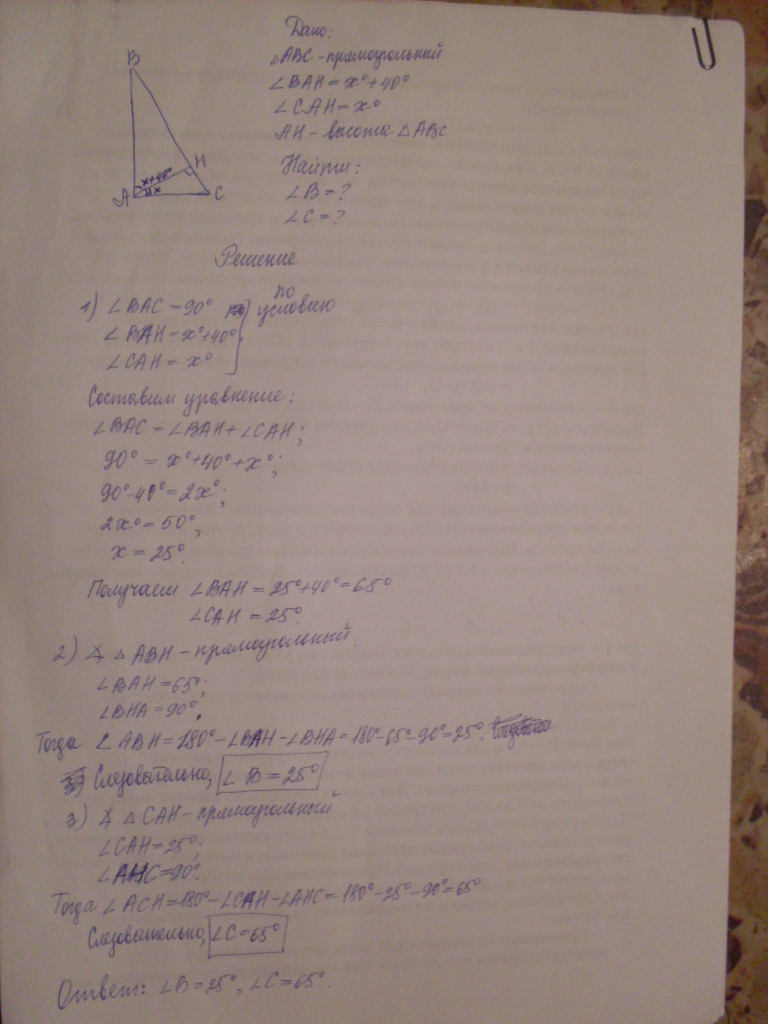 Дано:
△ABC - прямоугольный
∠BAH = x°+40°
∠CAH = x°
AH - высота △ABC
Найти:
∠B = ?
∠C = ?
B
H
x+40°
x
A
C
Решение
1) ∠BAC = 90° по
∠BAH = x°+40° условию
∠CAH = x°
Составим уравнение:
∠BAC = ∠BAH + ∠CAH;
90° = x°+40°+x°;
90°-40°=2x°;
2x°=50°;
x = 25°.
Получаем ∠BAH = 25°+40°=65°
∠CAH = 25°.
2) ∡ △ABH - прямоугольный.
∠BAH=65°;
∠BHA=90°.
Тогда ∠ABH=180°-∠BAH-∠BHA=180°-65°-90°=25°.
Следовательно, ∠B=25°
3) ∡ △CAH - прямоугольный
∠CAH=25°;
∠AHC=90°.
Тогда ∠ACH=180°-∠CAH-∠AHC=180°-25°-90°=65°
Следовательно, ∠C=65°
Ответ: ∠B=25°, ∠C=65°.